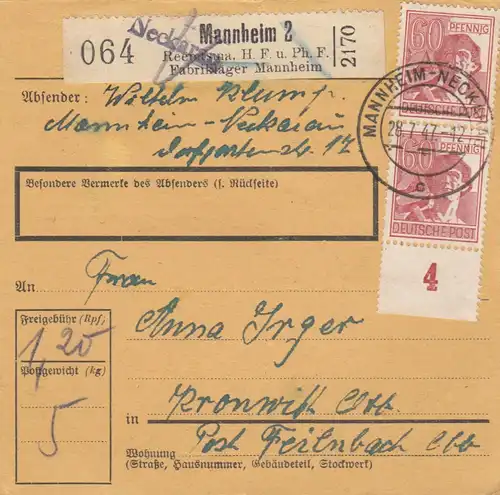 064
Neckarau
Mannheim 2
Reepers.na. H. F. u. Ph. F.
Fabriklager Mannheim
2170
60 PFENNIG
DEUTSCHE POST
MANNHEIM-NECKA
28.7.47.-12
c
60 PFENNIG
DEUTSCHE POST
4
Absender: Wilhelm Klump.
Mannheim-Neckarau
Dorfgartenstr. 17
Besondere Vermerke des Absenders (s. Rückseite)
An Frau
Anna Irger
Freigebühr (Rpf)
1,20
Postgewicht (kg)
5
Kronwitt Obb.
in Post Feilnbach Obb
Wohnung
(Straße, Hausnummer, Gebäudeteil, Stockwerk)